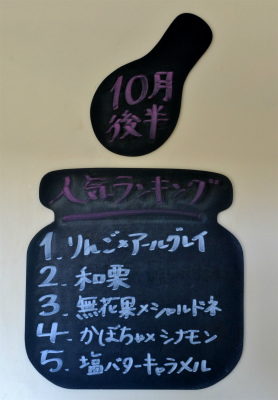 10月
後半
人気ランキング
1. りんご×アールグレイ
2. 和栗
3. 無花果×シャルドネ
4. かぼちゃ×シナモン
5. 塩バターキャラメル